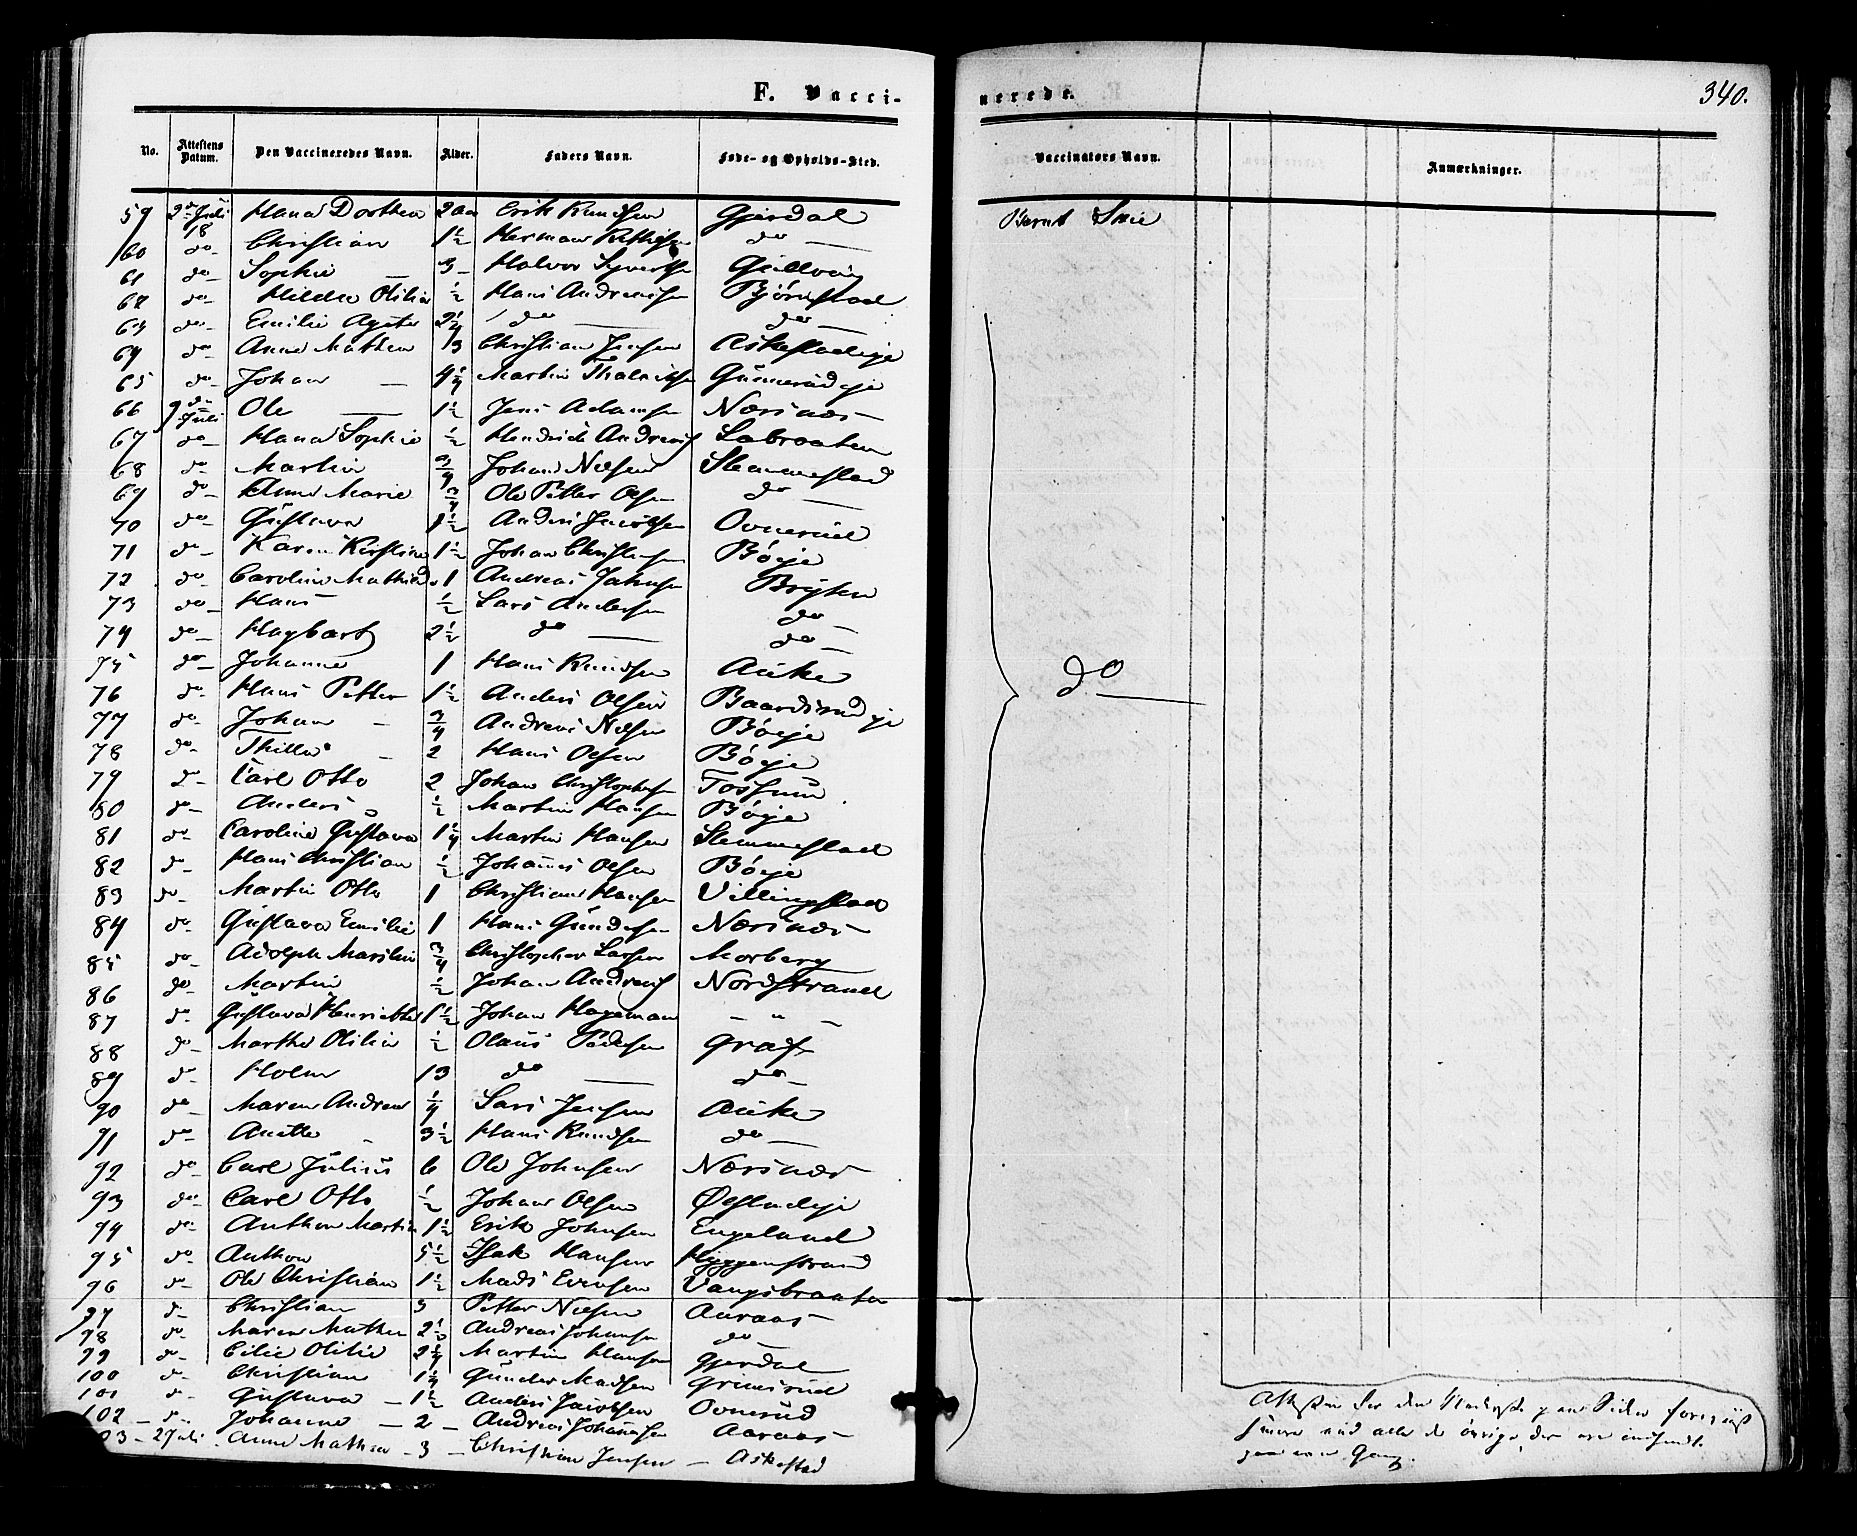 F. Vacci-
nerede.
340.
No. Attestens Datum. Den Vaccineredes Navn. Alder. Faders Navn. Føde- og Opholds-Sted. Vaccinators Navn. Anmærkninger.
59 2 Juli 18 Hana Dorthea 2 aar Erik Knudsen Gjerdal Bernt
60 do- Christian 1½ Herman do-
61 do- Sophie - 3- Halvor Syvertsen
62 do- Hilda Otilia ½ Hans Andreassen Bjørnstad
63 do- Emilie Agate 2¼ do- do-
64 do- Anne Mathea 13 Christian Jensen Askestadeje
65 do- Johan - 4¼ Martin Gunnerudeje
66 9 do Juli Ole - 1½ Jens Adamsen Næsnæs-
67 do- Hana Sophie ½ Hendrick Andreas Labraaten
68 do- Martin ¾ Johan Nilsen Slemmestad
69 do- Anne Marie ¾ Ole Petter Olsen do-
70 do- Gustava 1½ Anders Jacobsen Ovnerud
71 do- Karen Kirstine 1½ Johan Christensen Bøeje
72 do- Caroline Mathild. 1 Andreas Johnsen Brøten
73 do- Hans ½ Lars Andersen do-
74 do- Hagbart 2½ do- do-
75 do- Johanne 1 Hans Knudsen Auke
76 do- Hans Petter 1½ Anders Olsen Baardsrudeje
77 do- Johan - ¾ Andreas Nilsen Bøeje
78 do- Thilla - 2 Hans Olsen Bøeje
79 do- Carl Otto 2 Johan Christophersen Fossum
80 do- Anders ½ Martin Hansen Bøeje
81 do- Caroline Gustava 1¼ Martin Hansen Slemmestad
82 do- Hans Christian ½ Johannes Olsen Bøeje
83 do- Martin Otto 1 Christian Hansen Villingstad
84 do- Gustava Emilie 1 Hans Gundersen Næsnæs-
85 do- Adolph Martin ¾ Christopher Larsen Morberg
86 do- Martin ½ Johan Andreas Nordstrand
87 do- Gustava Henriette 1½ Johan Hageman - " -
88 do- Marthe Otilie ½ Olaus Pedersen
89 do- Holm 13 do- do-
90 do- Maren Andrea ¼ Lars Jensen Auke
91 do- Anette - 3½ Hans Knudsen do-
92 do- Carl Julius 6 Ole Johnsen Næsnæs-
93 do- Carl Otto ½ Johan Olsen
94 do- Anthon Martin 1½ Erik Johnsen Engeland
95 do- Anthon 5½ Isak Hansen Hyggenstrand
96 do- Ole Christian 1½ Mads Evensen Vangsbraaten
97 do- Christian 3 Petter Nilsen Aaraas-
98 do- Maren Mathea 2½ Andreas Johansen do-
99 do- Cilie Otilie 2¼ Martin Hansen Gjerdal
100 do- Christian 1¼ Gunder Madsen Grimsrud
101 do- Gustava - 1½ Anders Jacobsen Ovnerud
102 - do- Johanne - 2 - Andreas Johannesen Aaraas-
103 - 27 Juli . Anne Mathea - 3 - Christian Jensen - Askestad
do-